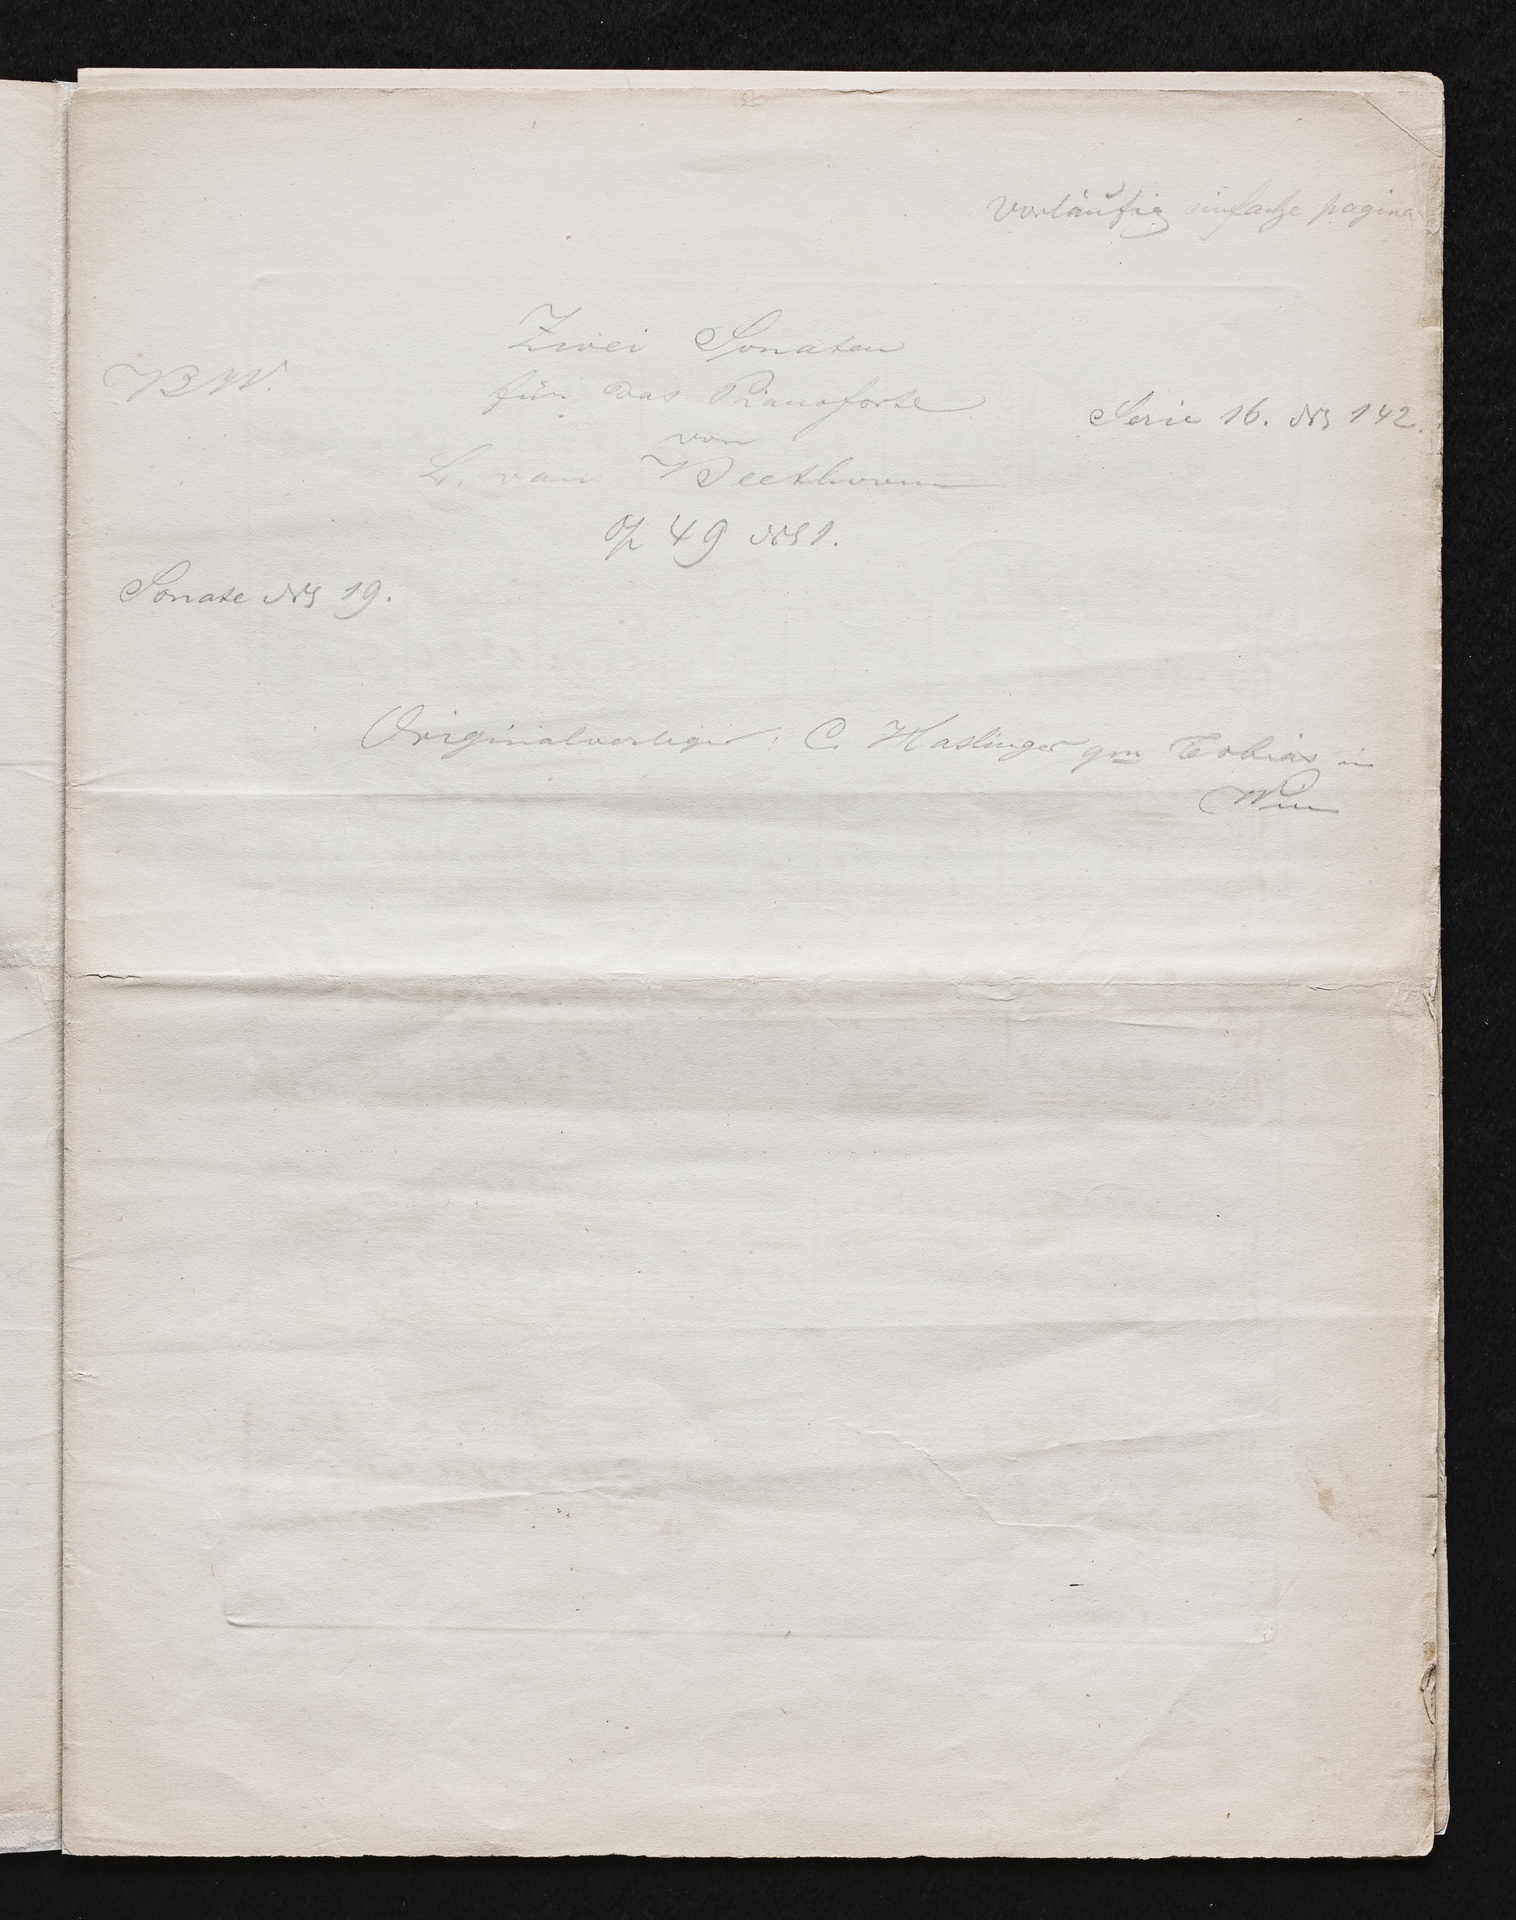 vorläufig einfache pagina
Zwei Sonaten
B W.
für das Pianoforte
Serie 16. No 142.
von
L. van Beethoven
Op 49 No 1.
Sonate No 19.
Originalverleger: C. Haslinger qm Tobias in
Wien